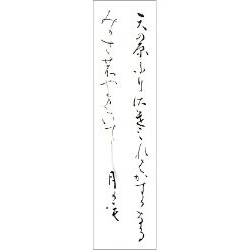 天の原ふりさけみれはかすかなる
みかさ能やまにいてし月かも